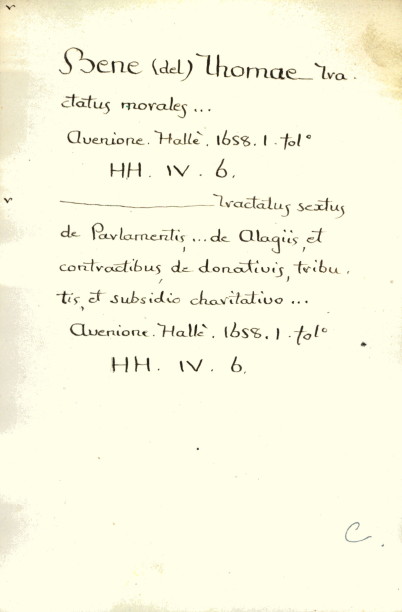 Bene (del) Thomae_Tra.
ctatus morales...
Avenione. Hallè. 1658. 1. fol°
HH. IV. 6.
________ Tractatus sextus
de Parlamentis, ... de Alagiis, et
contractibus, de donativis, tribu.
tis, et subsidio charitativo ...
Avenione. Hallè. 1658. 1. fol°
HH. IV. 6.
C.